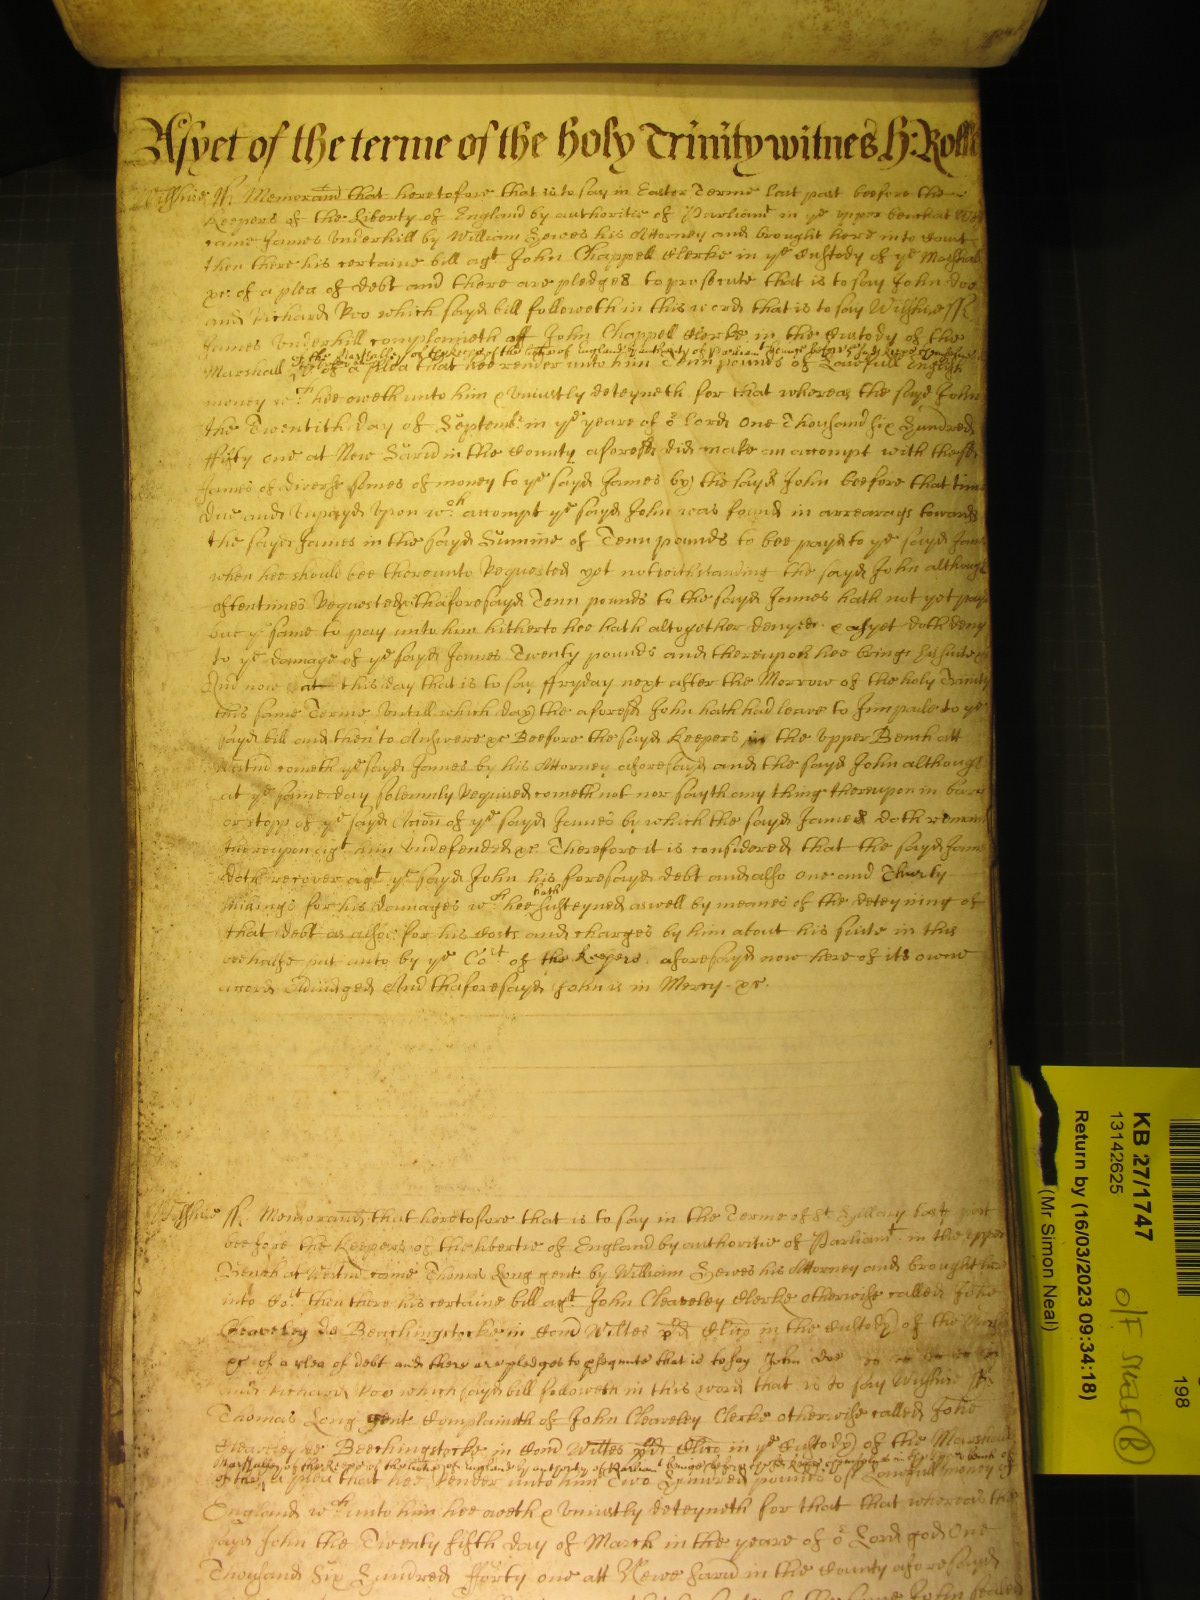 Asyet of the terme of the holy Trinity witnes H: Rolle
Wiltshire ss. Memorand that heretofore that is to say in Easter Terme last past beefore the
Keepers of the Liberty of England by authoritie of Parliamt in ye upper bench at
came James Underhill by William Hewes his Attorney and brought here into Court
then there his certaine bill agt John Chappell Clerke in ye Custody of ye Marshall
&c of a plea of debt and there are pledges to prosecute that is to say John Doe
and Richard Roo which sayd bill followeth in this word that is to say Wiltshire ss
James Underhill complaineth off John Chappell Clerke in the Custody of the
of the Marshallsey of the Keepers of the libertie of England by authority of Parliamt beinge before ye sayd Keepers
Marshall of a plea that hee render unto him Tenn pounds of Lawfull English
money wch hee oweth unto him & Uniustly deteyneth for that whereas the sayd John
the Twentith day of Septembr in ye yeare of or lord One Thousand six Hundred
ffifty one at New Sarum in the County aforesd did make an accompt with the sd
James of diverse sumes of money to ye sayd James by the sayd John beefore that time
due and Unpayd Upon wch accompt ye sayd John was found in arrearags towards
the sayd James in the sayd Summe of Tenn pounds to bee payd to ye sayd James
when hee should bee thereunto Requested yet notwithstanding the sayd John although
oftentimes Requested thaforesayd Tenn pounds to the sayd James hath not yet payd
but ye same to pay unto him hitherto hee hath altogether denyed & asyet doth deny
to ye damage of ye sayd James Twenty pounds and thereupon hee brings his suite &c
And now at this day that is to say ffryday next after the Morrow of the holy Trinity
this same Terme Untill which day the aforesd John hath had leave to Imparle to ye
sayd bill and then to Answere &c Beefore the sayd Keepers in the Upper Bench att
Westmr cometh ye sayd James by his Attorney aforesayd and the sayd John although
at ye same day solemnly Required cometh not nor sayth any thing thereupon in barr
or stopp of ye sayd Accon of ye sayd James by which the sayd James doth remaine
thereupon agt him Undefended &c. Therefore it is considered that the sayd James
doth recover agt ye sayd John his foresayd debt and also one and Thirty
hath
shillings for his damages wch hee susteyned aswell by meanes of the deteyning of
that debt as also for his Costs and charges by him about his suite in this
beehalfe put unto by ye Cort of the Keepers aforesayd now here of its owne
accord Adiudged And thaforesayd John is in Mercy &c.
Wiltshire ss. Memorand that heretofore that is to say in the Terme of St Hillary last past
beefore the Keepers of the libertie of England by authoritie of Parliamt in the upper
Bench at Westmr came Thomas Long gent by William Hewes his Attorney and brought here
into Cort then there his certaine bill agt John Cleaveley Clerke otherwise called John
Cleaveley de Beechingstocke in Com Wiltes pd Clico in the Custody of the
&c of a plea of debt and there are pledges to p[ro]sequute that is to say John Doe
and Richard Roo which sayd bill followeth in this word that is to say Wiltshire ss
Thomas Long gent Complaineth of John Cleaveley Clerke otherwise called John
Cleaveley de Beechingstocke in Com Wiltes pd Clico in ye Custody of the Marshall
Marshallsey of the Keepers of the libertie of England by authority of Parliamt beinge before
of the plea that hee Render unto him Two Hundred pounds of Lawfull money of
England wch unto him hee oweth & Uniustly deteyneth for that that whereas the
sayd John the Twenty fifth day of March in the yeare of or Lord god One
Thousand Six Hundred fforty one att Newe Sarum in the County aforesayd
KB 27/1747
13142625
Return by (16/03/2023 09:34:18)
(Mr Simon Neal)
198